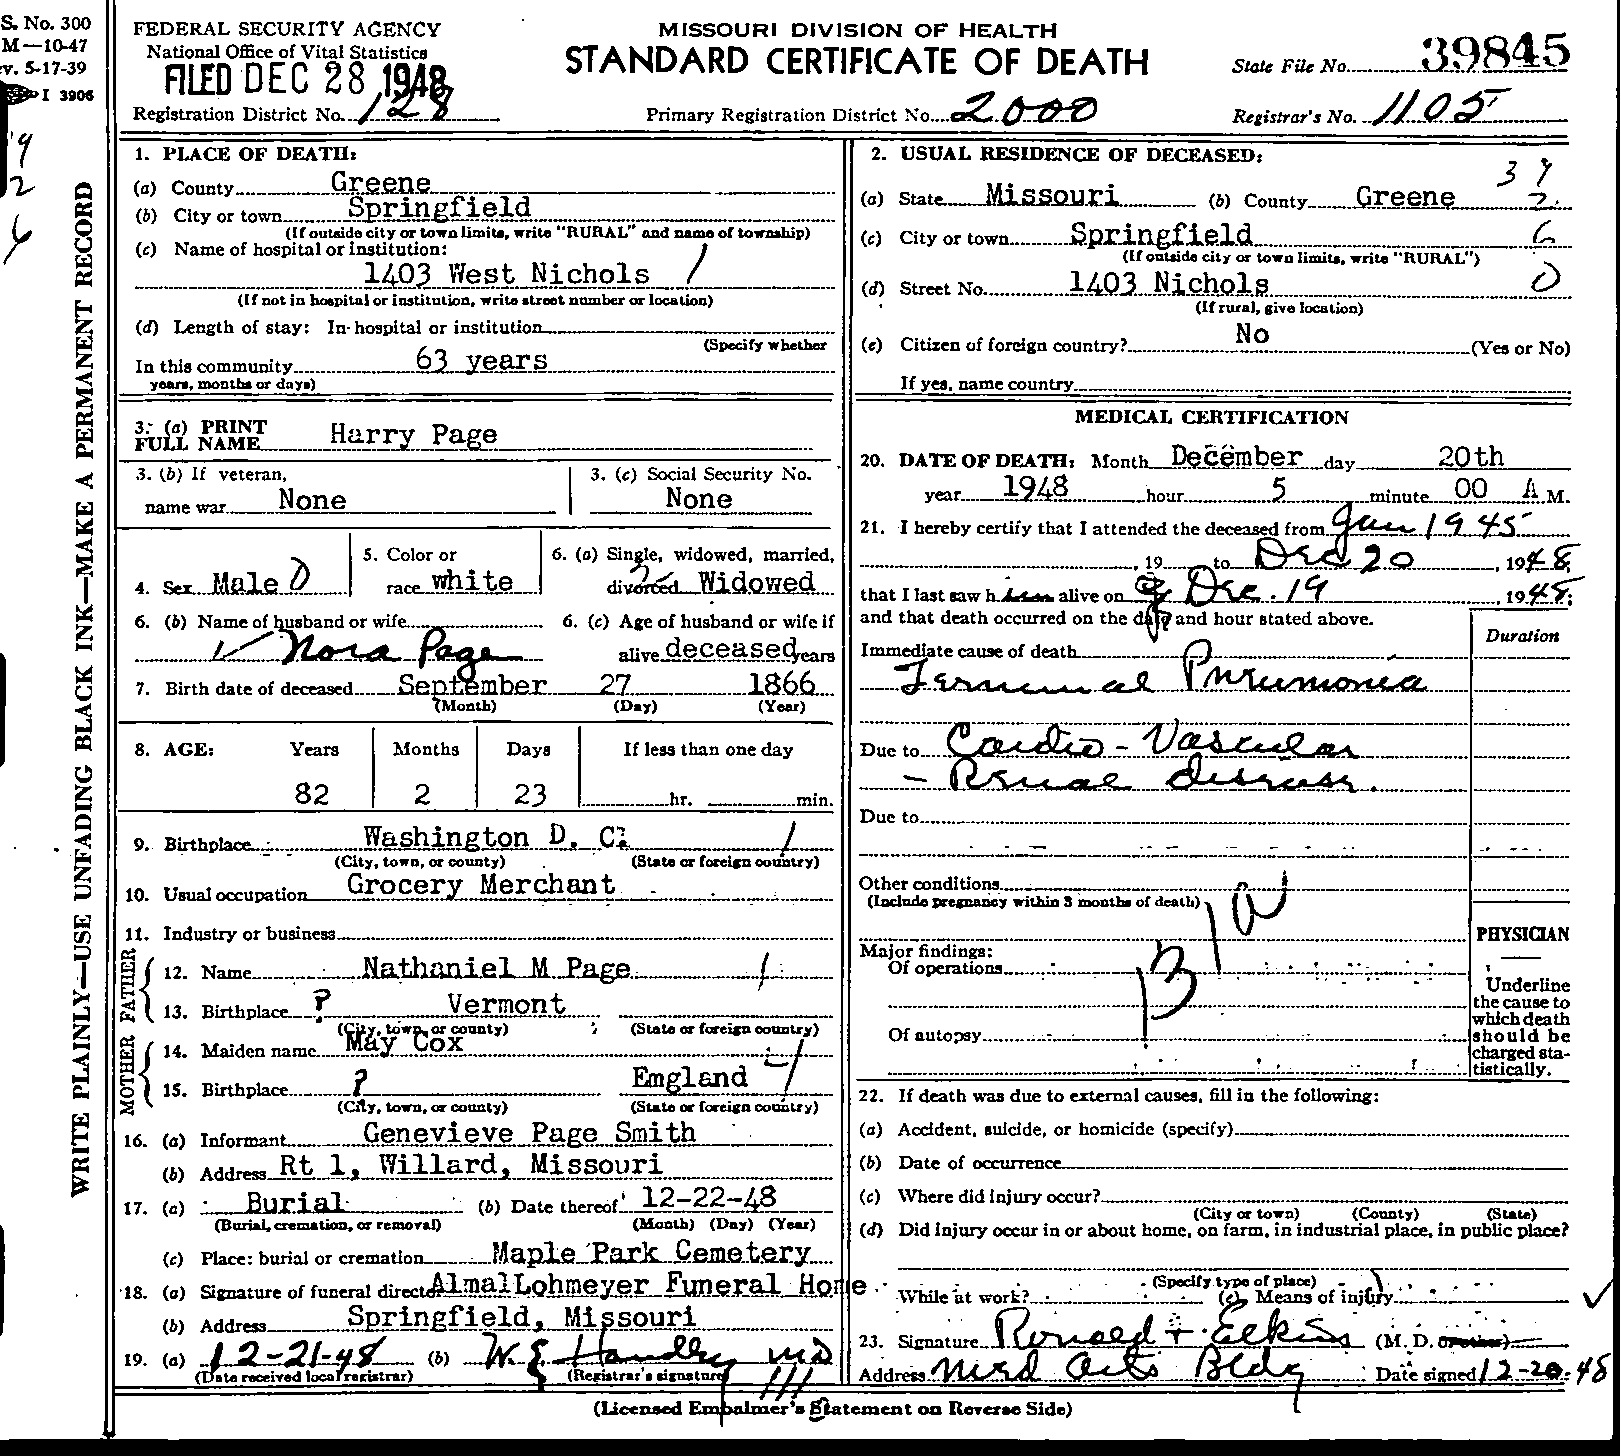 S. No. 300
M—10-47
v. 5-17-39
I 3906
WRITE PLAINLY—USE UNFADING BLACK INK—MAKE A PERMANENT RECORD
FEDERAL SECURITY AGENCY
National Office of Vital Statistics
FILED DEC 28 1948
Registration District No. 128
MISSOURI DIVISION OF HEALTH
STANDARD CERTIFICATE OF DEATH
Primary Registration District No. 2000
State File No. 39845
Registrar's No. 1105
1. PLACE OF DEATH:
(a) County Greene
(b) City or town Springfield
(If outside city or town limits, write "RURAL" and name of township)
(c) Name of hospital or institution:
1403 West Nichols 1
(If not in hospital or institution, write street number or location)
(d) Length of stay: In hospital or institution
(Specify whether
In this community 63 years
years, months or days)
3. (a) PRINT
FULL NAME Harry Page
3. (b) If veteran,
name war None
3. (c) Social Security No.
None
4. Sex Male 0
5. Color or
race white
6. (a) Single, widowed, married,
divorced Widowed
6. (b) Name of husband or wife
Nora Page
6. (c) Age of husband or wife if
alive deceased years
7. Birth date of deceased September 27 1866
(Month) (Day) (Year)
8. AGE: Years Months Days If less than one day
82 2 23 hr. min.
9. Birthplace Washington D. C. 1
(City, town, or county) (State or foreign country)
10. Usual occupation Grocery Merchant
11. Industry or business
FATHER
12. Name Nathaniel M Page 1
13. Birthplace ? Vermont
(City, town, or county) (State or foreign country)
MOTHER
14. Maiden name May Cox
15. Birthplace ? Emgland 4
(City, town, or county) (State or foreign country)
16. (a) Informant Genevieve Page Smith
(b) Address Rt 1, Willard, Missouri
17. (a) Burial (b) Date thereof 12-22-48
(Burial, cremation, or removal) (Month) (Day) (Year)
(c) Place: burial or cremation Maple Park Cemetery
18. (a) Signature of funeral director AlmalLohmeyer Funeral Home
(b) Address Springfield, Missouri
19. (a) 12-21-48 (b) W. E. Handley MD
(Date received local registrar) (Registrar's signature)
2. USUAL RESIDENCE OF DECEASED:
39
(a) State Missouri (b) County Greene 2
(c) City or town Springfield 6
(If outside city or town limits, write "RURAL")
(d) Street No. 1403 Nichols 0
(If rural, give location)
(e) Citizen of foreign country? No (Yes or No)
If yes, name country
MEDICAL CERTIFICATION
20. DATE OF DEATH: Month December day 20th
year 1948 hour 5 minute 00 A M.
21. I hereby certify that I attended the deceased from Jan 1945
, 19 to Dec 20 , 1948
that I last saw h im alive on Dec. 19 , 1948;
and that death occurred on the date and hour stated above.
Duration
Immediate cause of death
Terminal Pneumonia
Due to Cardio-Vascular
- Renal disease.
Due to
Other conditions
(Include pregnancy within 3 months of death)
131a
Major findings:
Of operations
Of autopsy
PHYSICIAN
Underline
the cause to
which death
should be
charged sta-
tistically.
22. If death was due to external causes, fill in the following:
(a) Accident, suicide, or homicide (specify)
(b) Date of occurrence
(c) Where did injury occur?
(City or town) (County) (State)
(d) Did injury occur in or about home, on farm, in industrial place, in public place?
(Specify type of place)
While at work? (e) Means of injury
23. Signature Ronald F. Elkins (M. D. or other)
Address Med Arts Bldg Date signed 12-20-48
(Licensed Embalmer's Statement on Reverse Side)